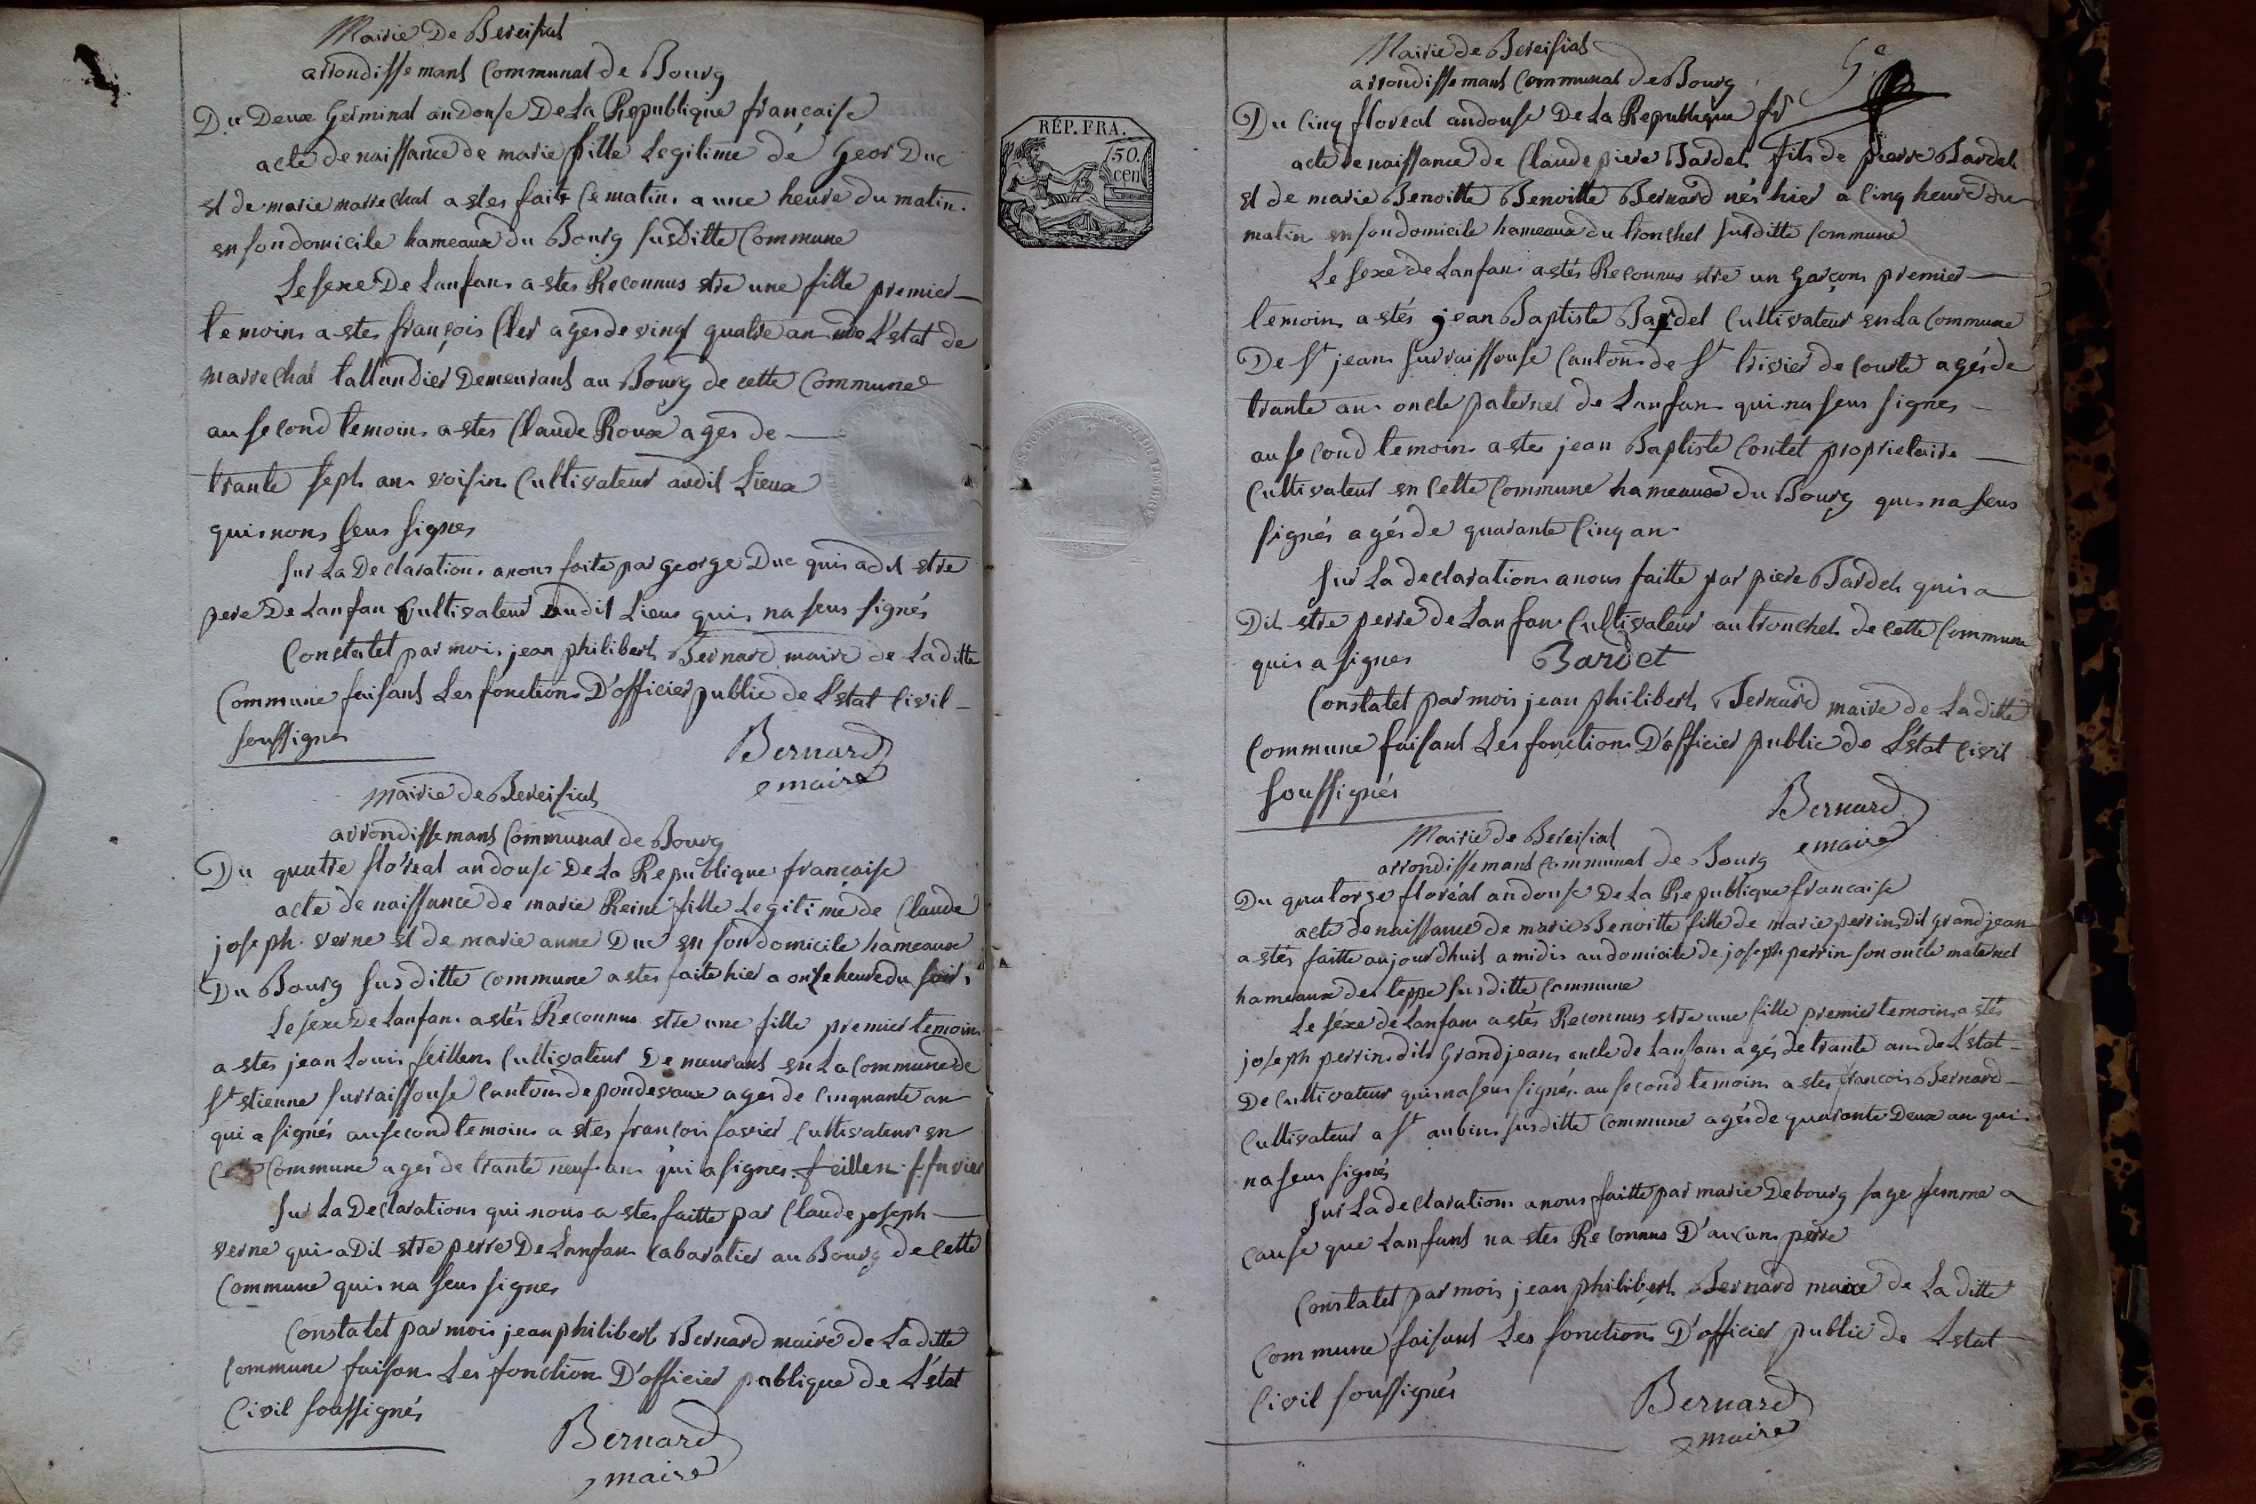 Mairie De Bereisiat
arrondissemant Communal de Bourg
Du Deux Germinal an douse De La Republique francaise
acte de naissance de marie fille Legitime de Geor Duc
et de marie marrechal a etes fait Ce matin a une heure du matin
en son domicile hameaux du Bourg susditte Commune
Le sexe De Lanfan a etes Reconnus etre une fille premier
temoin a etes françois Cler ages de vingt quatre an de L'etat de
marrechal tallandier Demeurant au Bourg de cette Commune
au second temoin a etes Claude Roux ages de
trante sept an voisin Cultivateur audit Lieux
qui nons seus signes
sur La Declaration a nous faite par george Duc qui a dit etre
pere De Lanfan Cultivateur audit Lieux qui na seus signés
Constatet par mois jean philibert Bernard maire de La ditte
Commune faisant Les fonction D'officier public de L'etat Civil
soussignes
Bernard
maire
Mairie de Bereisiat
arrondissemant Communal de Bourg
Du quatre floreal an douse De La Republique francaise
acte de naissance de marie Reine fille Legitime de Claude
joseph verne et de marie anne Duc en son domicile hameaux
Du Bourg susditte commune a etes faite hier a onse heure du soir
Le sexe De Lanfan a etés Reconnus etre une fille premier temoin
a etes jean Louis feillens Cultivateur Demeurant en La Commune de
St etienne surraissouse Canton de pondevaux ages de Cinquante an
qui a signés au second temoin a etes françois favier Cultivateur en
Cette Commune ages de trante neuf an qui a signes feillen f favier
Sur La Declaration qui nous a etes faitte par Claude joseph
verne qui a Dit etre perre De Lanfan Cabaratier au Bourg de cette
Commune qui na seus signes
Constatet par mois jean philibert Bernard maire de La ditte
Commune faisan Les fonction D'officier publique de L'état
Civil soussignés
Bernard
maire
5e
RÉP. FRA.
50.
cen
Mairie de Bereisiat
arrondissemant Communal de Bourg
Du Cinq floreal an douse De La Republique fr
acte de naissance de Claude piere Bardet fils de pierre Bardet
et de marie Benoitte Benoitte Bernard nés hier a Cinq heure du
matin en son domicile hameaux du tronchet susditte Commune
Le sexe de Lanfan a etés Reconnus etre un Garçon premier
temoin a etés jean Baptiste Bardet Cultivateur en La Commune
De St jean surraissouse Canton de St trivier de Courte agés de
trante an oncle paternel de Lanfan qui na seus signes
au second temoin a etes jean Baptiste Contet proprietaire
Cultivateur en Cette Commune hameaux du Bourg qui na seus
signés agés de quarante Cinq an
Sur La declaration a nous faitte par piere Bardet qui a
Dit etre perre de Lanfan Cultivateur au tronchet de cette Commune
qui a signes Bardet
Constatet par mois jean philibert Bernard maire de La ditte
Commune faisant Les fonction D'officier public de L'etat Civil
soussignés
Bernard
maire
Mairie de Bereisiat
arrondissemant Communal de Bourg
Du quatorse floréal an douse De La Republique francaise
acte de naissance de marie Benoitte fille de marie perrin Dit Grandjean
a etés faitte aujourdhuit a midi au domicile de joseph perrin son oncle maternel
hameaux des teppe susditte Commune
Le séxe de Lanfan a etés Reconnus etre une fille premier temoin a etés
joseph perrin dits Grandjean oncle de Lanfan agés de trante an de L'etat
De Cultivateur qui na seus signés au second temoin a etes francois Bernard
Cultivateur a St aubin susditte Commune agés de quarante Deux an qui
na seus signés
Sur La declaration a nous faitte par marie Debourg sage femme a
cause que Lanfant na etes Reconnus D'aucun perre
Constatet par mois jean philibert Bernard maire de La ditte
Commune faisant Les fonction D'officier public de Letat
Civil soussignés
Bernard
maire